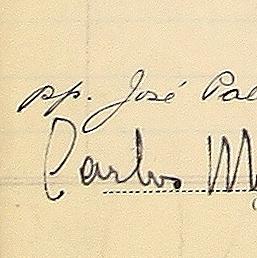 pp. José Pa
Carlos M